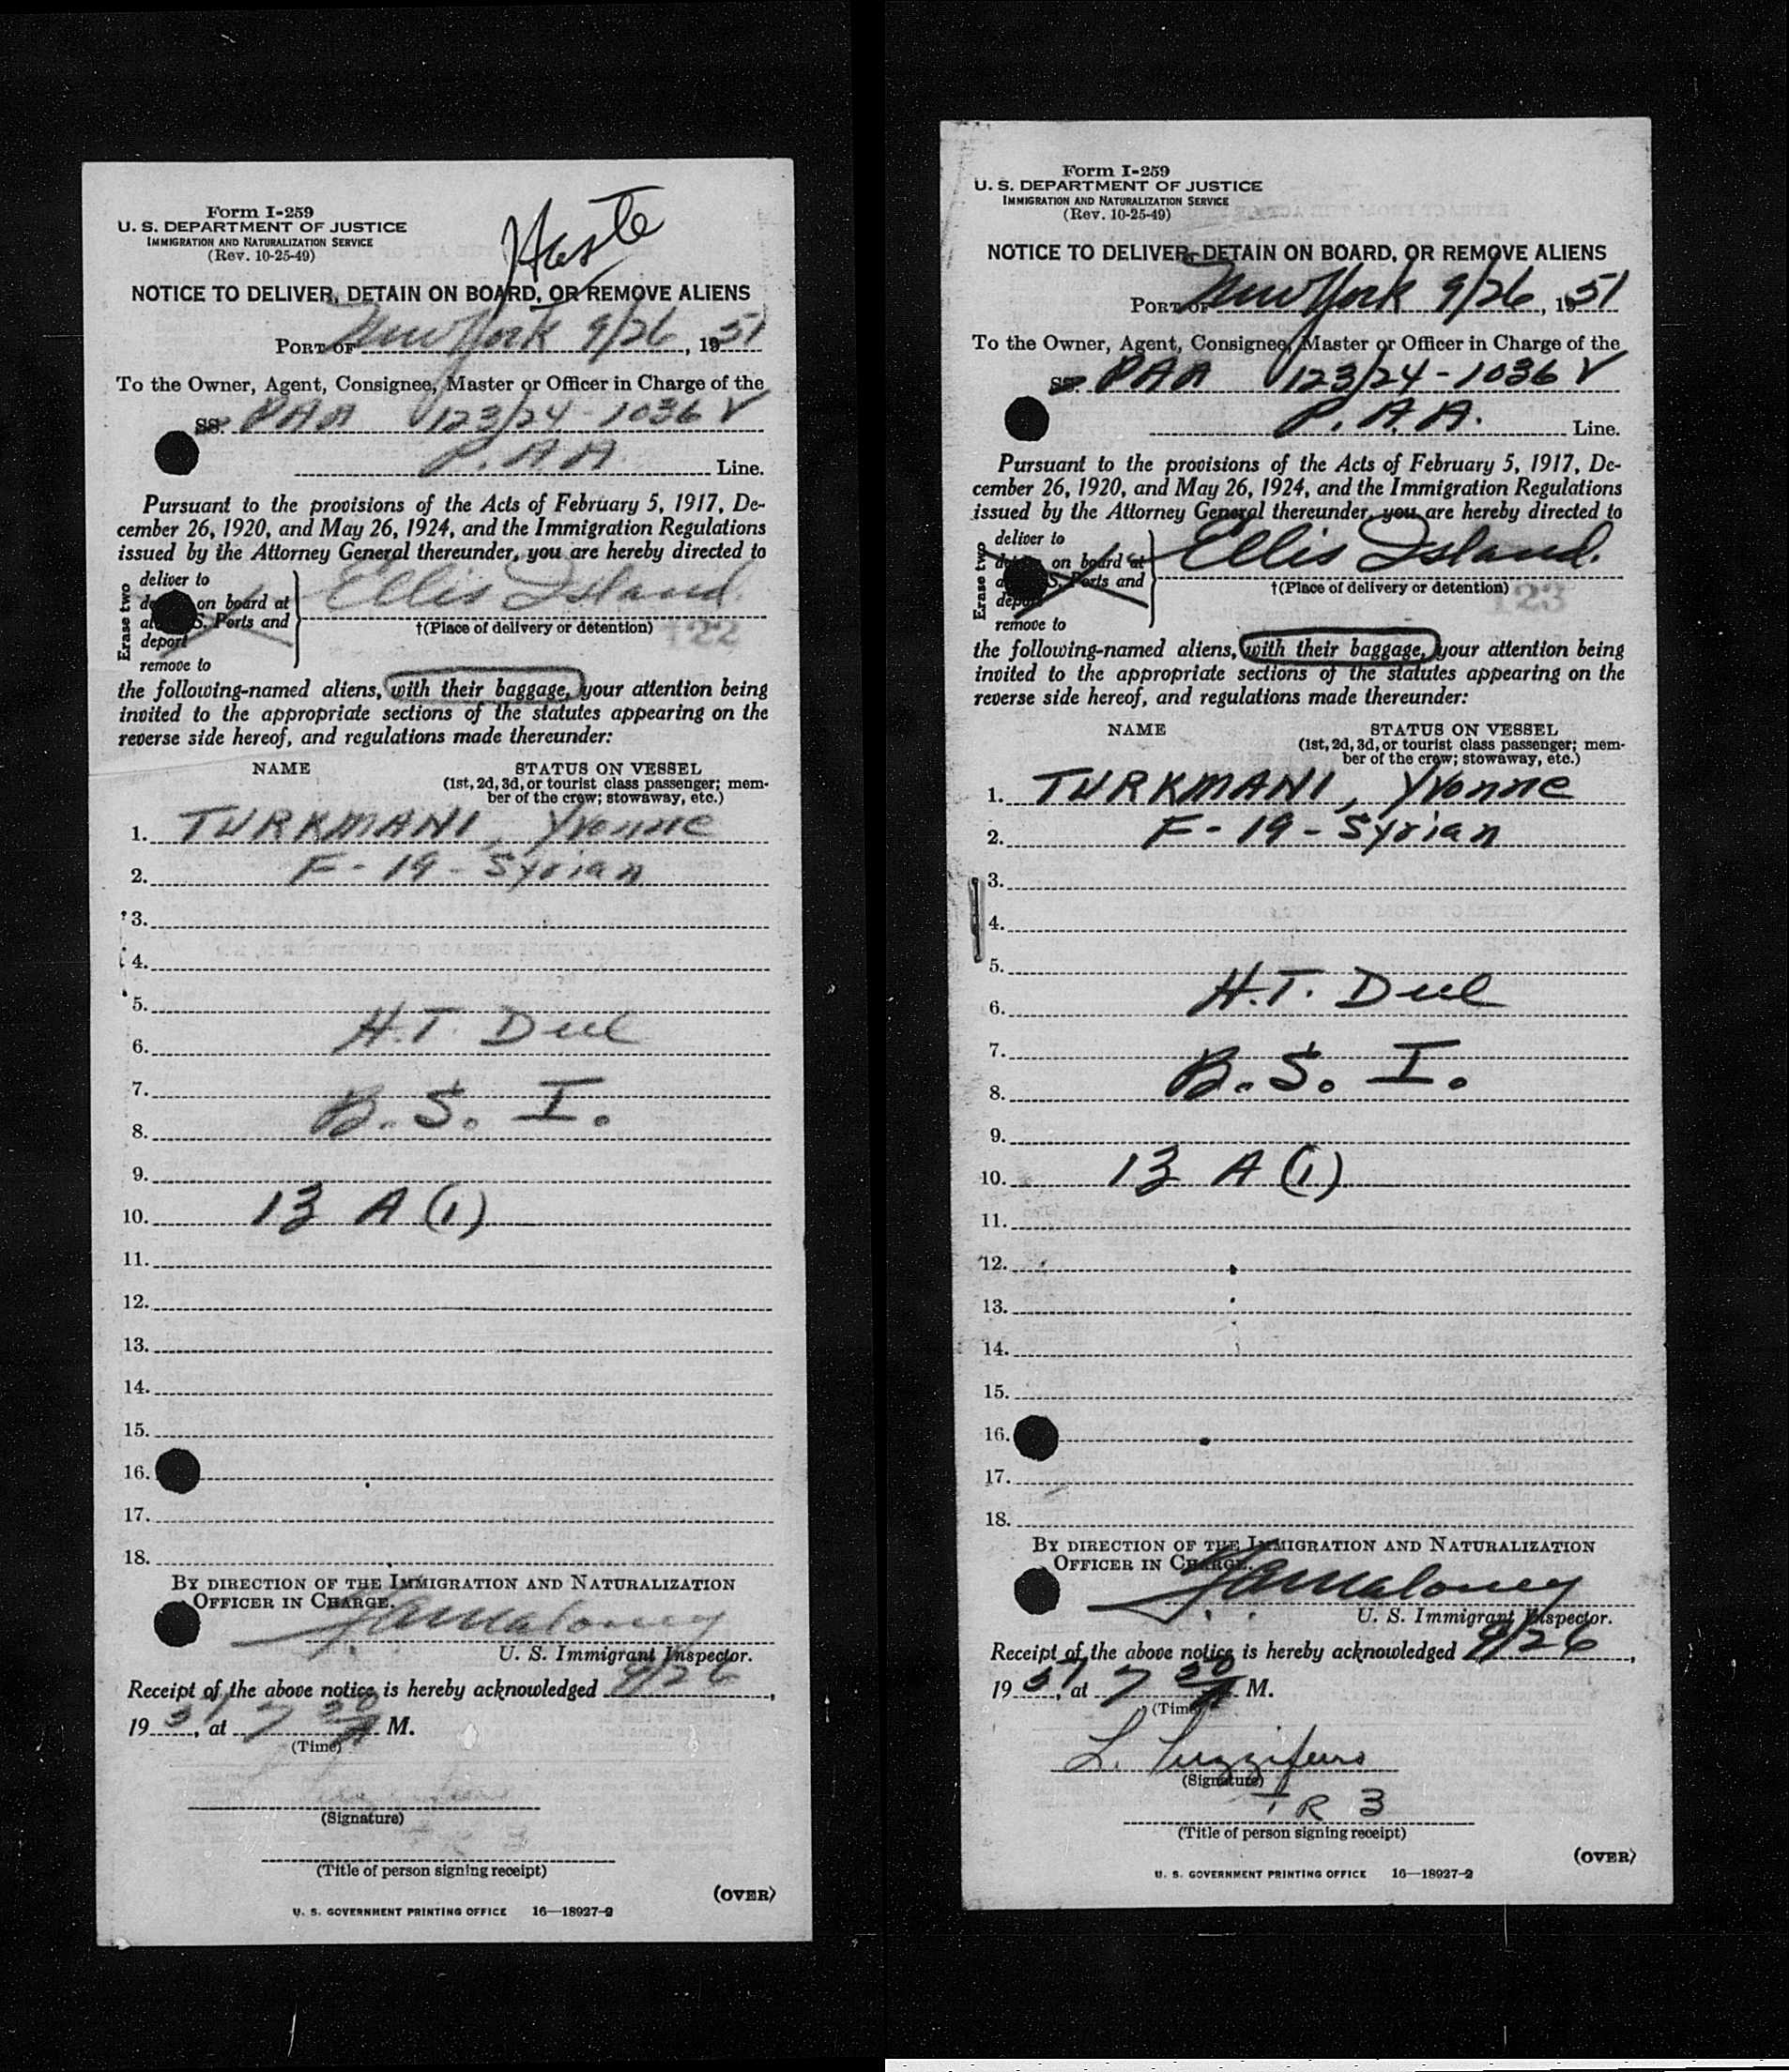 Form I-259
U. S. DEPARTMENT OF JUSTICE
IMMIGRATION AND NATURALIZATION SERVICE
(Rev. 10-25-49)
Haste
NOTICE TO DELIVER, DETAIN ON BOARD, OR REMOVE ALIENS
PORT OF New York 9/26, 1951
To the Owner, Agent, Consignee, Master or Officer in Charge of the
SS. PAA 123/24-1036 V
P.A.A. Line.
Pursuant to the provisions of the Acts of February 5, 1917, De-
cember 26, 1920, and May 26, 1924, and the Immigration Regulations
issued by the Attorney General thereunder, you are hereby directed to
Erase two
deliver to
on board at
S. Ports and
deport
remove to
Ellis Island.
†(Place of delivery or detention)
122
the following-named aliens, with their baggage, your attention being
invited to the appropriate sections of the statutes appearing on the
reverse side hereof, and regulations made thereunder:
NAME STATUS ON VESSEL
(1st, 2d, 3d, or tourist class passenger; mem-
ber of the crew; stowaway, etc.)
1. TURKMANI, Yvonne
2. F-19-Syrian
3.
4.
5.
6. H.T. Duel
7.
8. B.S.I.
9.
10. 13 A (1)
11.
12.
13.
14.
15.
16.
17.
18.
BY DIRECTION OF THE IMMIGRATION AND NATURALIZATION
OFFICER IN CHARGE.
Maloney
U. S. Immigrant Inspector.
Receipt of the above notice is hereby acknowledged 9/26,
1951, at 7 30 A M.
(Time)
(Signature)
(Title of person signing receipt)
(OVER)
U. S. GOVERNMENT PRINTING OFFICE 16—18927-2
Form I-259
U. S. DEPARTMENT OF JUSTICE
IMMIGRATION AND NATURALIZATION SERVICE
(Rev. 10-25-49)
NOTICE TO DELIVER, DETAIN ON BOARD, OR REMOVE ALIENS
PORT OF New York 9/26, 1951
To the Owner, Agent, Consignee, Master or Officer in Charge of the
SS. PAA 123/24-1036 V
P.A.A. Line.
Pursuant to the provisions of the Acts of February 5, 1917, De-
cember 26, 1920, and May 26, 1924, and the Immigration Regulations
issued by the Attorney General thereunder, you are hereby directed to
Erase two
deliver to
on board at
S. Ports and
deport
remove to
Ellis Island.
†(Place of delivery or detention)
123
the following-named aliens, with their baggage, your attention being
invited to the appropriate sections of the statutes appearing on the
reverse side hereof, and regulations made thereunder:
NAME STATUS ON VESSEL
(1st, 2d, 3d, or tourist class passenger; mem-
ber of the crew; stowaway, etc.)
1. TURKMANI, Yvonne
2. F-19-Syrian
3.
4.
5.
6. H.T. Duel
7.
8. B.S.I.
9.
10. 13 A (1)
11.
12.
13.
14.
15.
16.
17.
18.
BY DIRECTION OF THE IMMIGRATION AND NATURALIZATION
OFFICER IN CHARGE.
Maloney
U. S. Immigrant Inspector.
Receipt of the above notice is hereby acknowledged 9/26,
1951, at 7 30 A M.
(Time)
L.
(Signature)
R 3
(Title of person signing receipt)
(OVER)
U. S. GOVERNMENT PRINTING OFFICE 16—18927-2